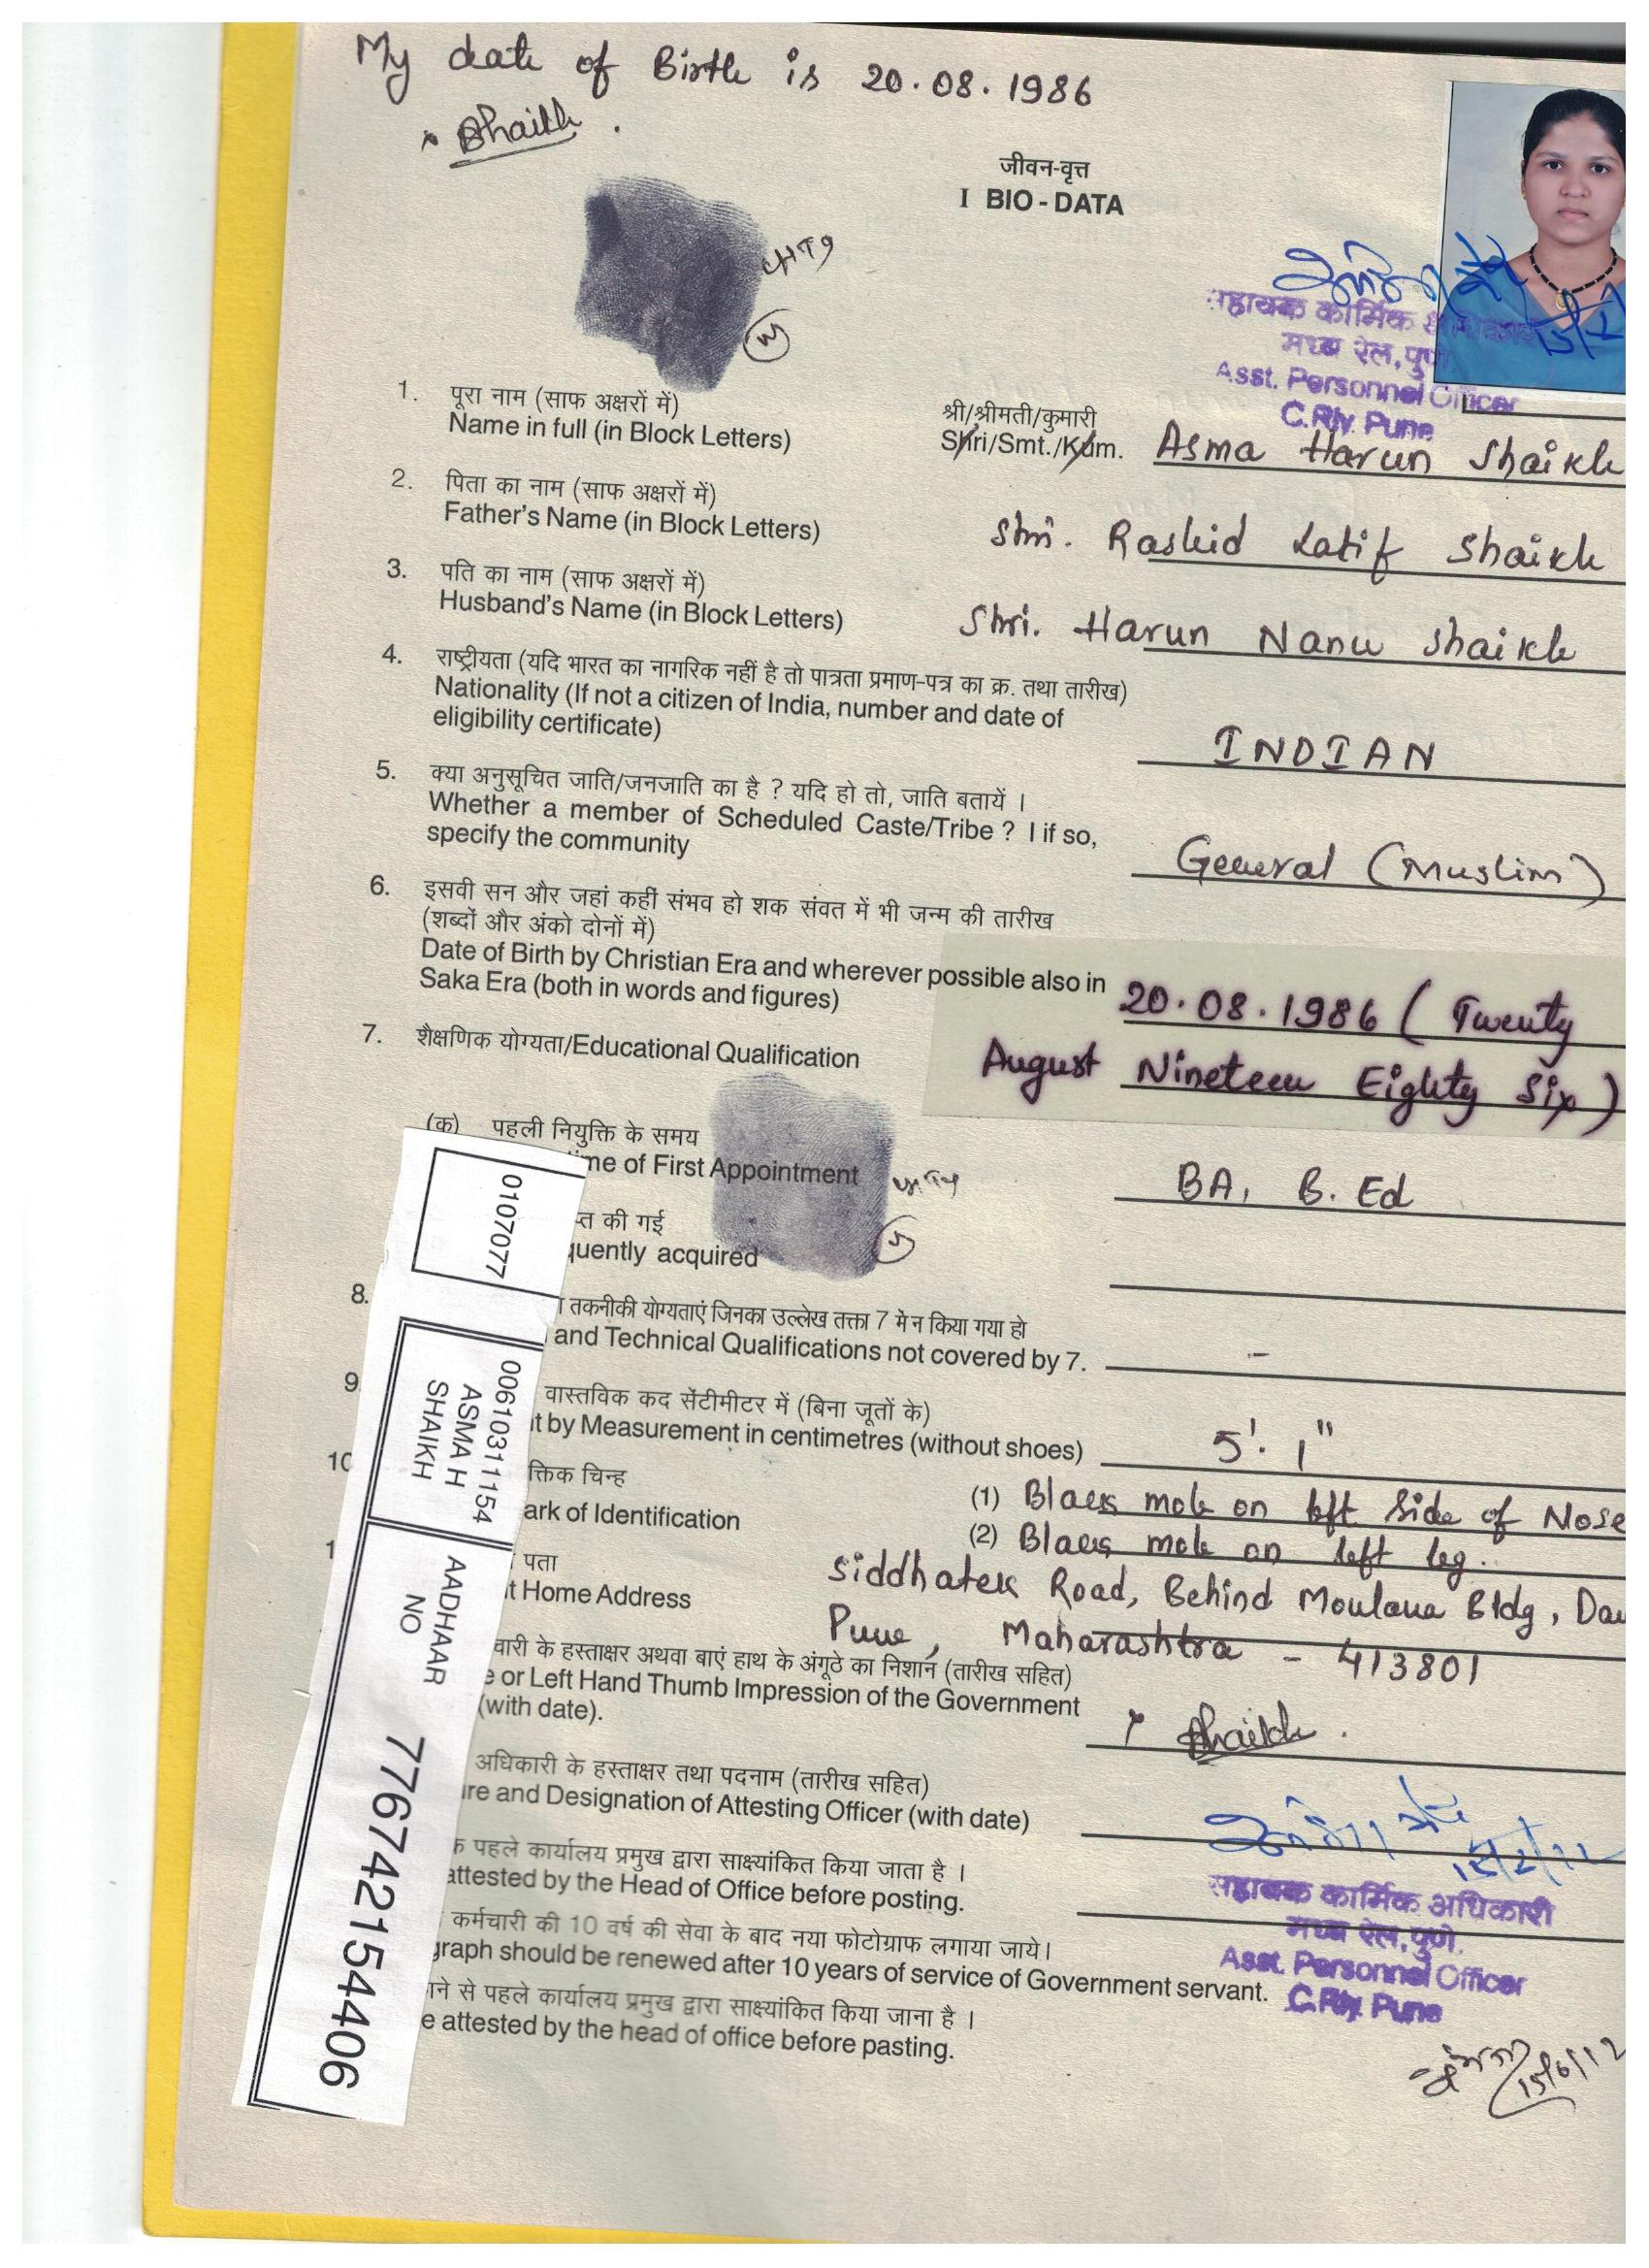 My date of Birth is 20.08.1986
Shaikh.
जीवन-वृत्त
I BIO - DATA
सहायक कार्मिक अधिकारी
मध्य रेल, पुणे
Asst. Personnel Officer
C.Rly. Pune
1. पूरा नाम (साफ अक्षरों में)
Name in full (in Block Letters)
श्री/श्रीमती/कुमारी
Shri/Smt./Kum. Asma Harun Shaikh
2. पिता का नाम (साफ अक्षरों में)
Father's Name (in Block Letters)
Shri. Rashid Latif Shaikh
3. पति का नाम (साफ अक्षरों में)
Husband's Name (in Block Letters)
Shri. Harun Nanu Shaikh
4. राष्ट्रीयता (यदि भारत का नागरिक नहीं है तो पात्रता प्रमाण-पत्र का क्र. तथा तारीख)
Nationality (If not a citizen of India, number and date of
eligibility certificate)
INDIAN
5. क्या अनुसूचित जाति/जनजाति का है ? यदि हो तो, जाति बतायें ।
Whether a member of Scheduled Caste/Tribe ? I if so,
specify the community
General (Muslim)
6. इसवी सन और जहां कहीं संभव हो शक संवत में भी जन्म की तारीख
(शब्दों और अंको दोनों में)
Date of Birth by Christian Era and wherever possible also in
Saka Era (both in words and figures)
20.08.1986 (Twenty
August Nineteen Eighty Six)
7. शैक्षणिक योग्यता/Educational Qualification
(क) पहली नियुक्ति के समय
ime of First Appointment
BA, B. Ed
प्त की गई
quently acquired
8. तकनीकी योग्यताएं जिनका उल्लेख तक्ता 7 में न किया गया हो
and Technical Qualifications not covered by 7. -
9 वास्तविक कद सेंटीमीटर में (बिना जूतों के)
t by Measurement in centimetres (without shoes) 5'. 1"
10 क्तिक चिन्ह
ark of Identification
(1) Black mole on left side of Nose
(2) Black mole on left leg.
1 पता
t Home Address
Siddhatek Road, Behind Moulana Bldg, Dau
Pune, Maharashtra - 413801
चारी के हस्ताक्षर अथवा बाएं हाथ के अंगूठे का निशान (तारीख सहित)
e or Left Hand Thumb Impression of the Government
(with date).
Shaikh.
अधिकारी के हस्ताक्षर तथा पदनाम (तारीख सहित)
ire and Designation of Attesting Officer (with date)
क पहले कार्यालय प्रमुख द्वारा साक्ष्यांकित किया जाता है ।
attested by the Head of Office before posting.
कर्मचारी की 10 वर्ष की सेवा के बाद नया फोटोग्राफ लगाया जाये।
graph should be renewed after 10 years of service of Government servant.
ाने से पहले कार्यालय प्रमुख द्वारा साक्ष्यांकित किया जाना है ।
e attested by the head of office before pasting.
सहायक कार्मिक अधिकारी
मध्य रेल, पुणे.
Asst. Personnel Officer
C.Rly. Pune
15/6/12
0107077
00610311154
ASMA H
SHAIKH
AADHAAR
NO
776742154406